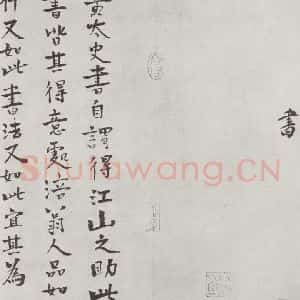 書
黄太史書自謂得江山之助此
書皆其得意處涪翁人品如
行又如此書法又如此宜其為
Shufawang.CN